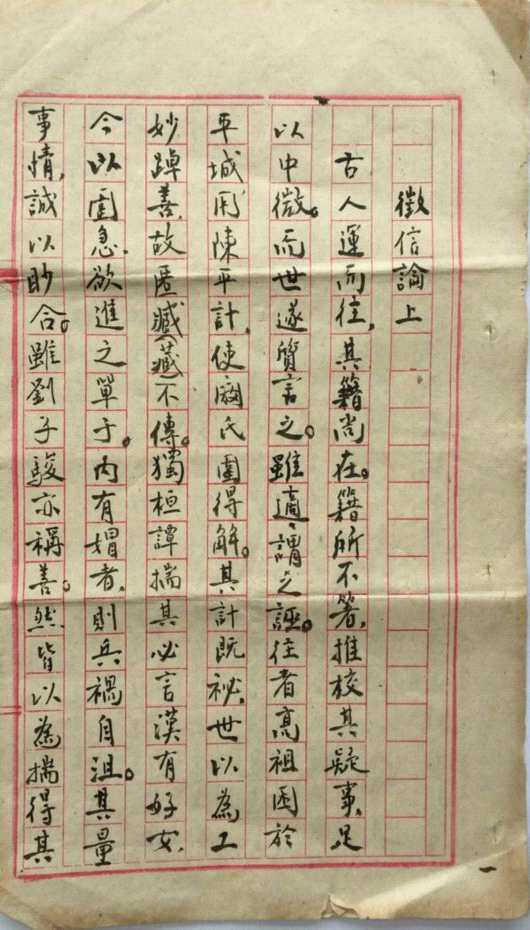 徵信論上
古人運而往，其籍尚在。籍所不箸，推校其疑事，足
以中微。而世遂質言之。雖適，謂之誣。往者高祖困於
平城，用陳平計，使閼氏圍得解。其計既祕，世以為工
妙踔善，故匿臧藏不傳。獨桓譚揣其必言漢有好女，
今以圍急，欲進之單于。內有媢者，則兵禍自沮。其量
事情，誠以眇合。雖劉子駿亦稱善。然皆以為揣得其